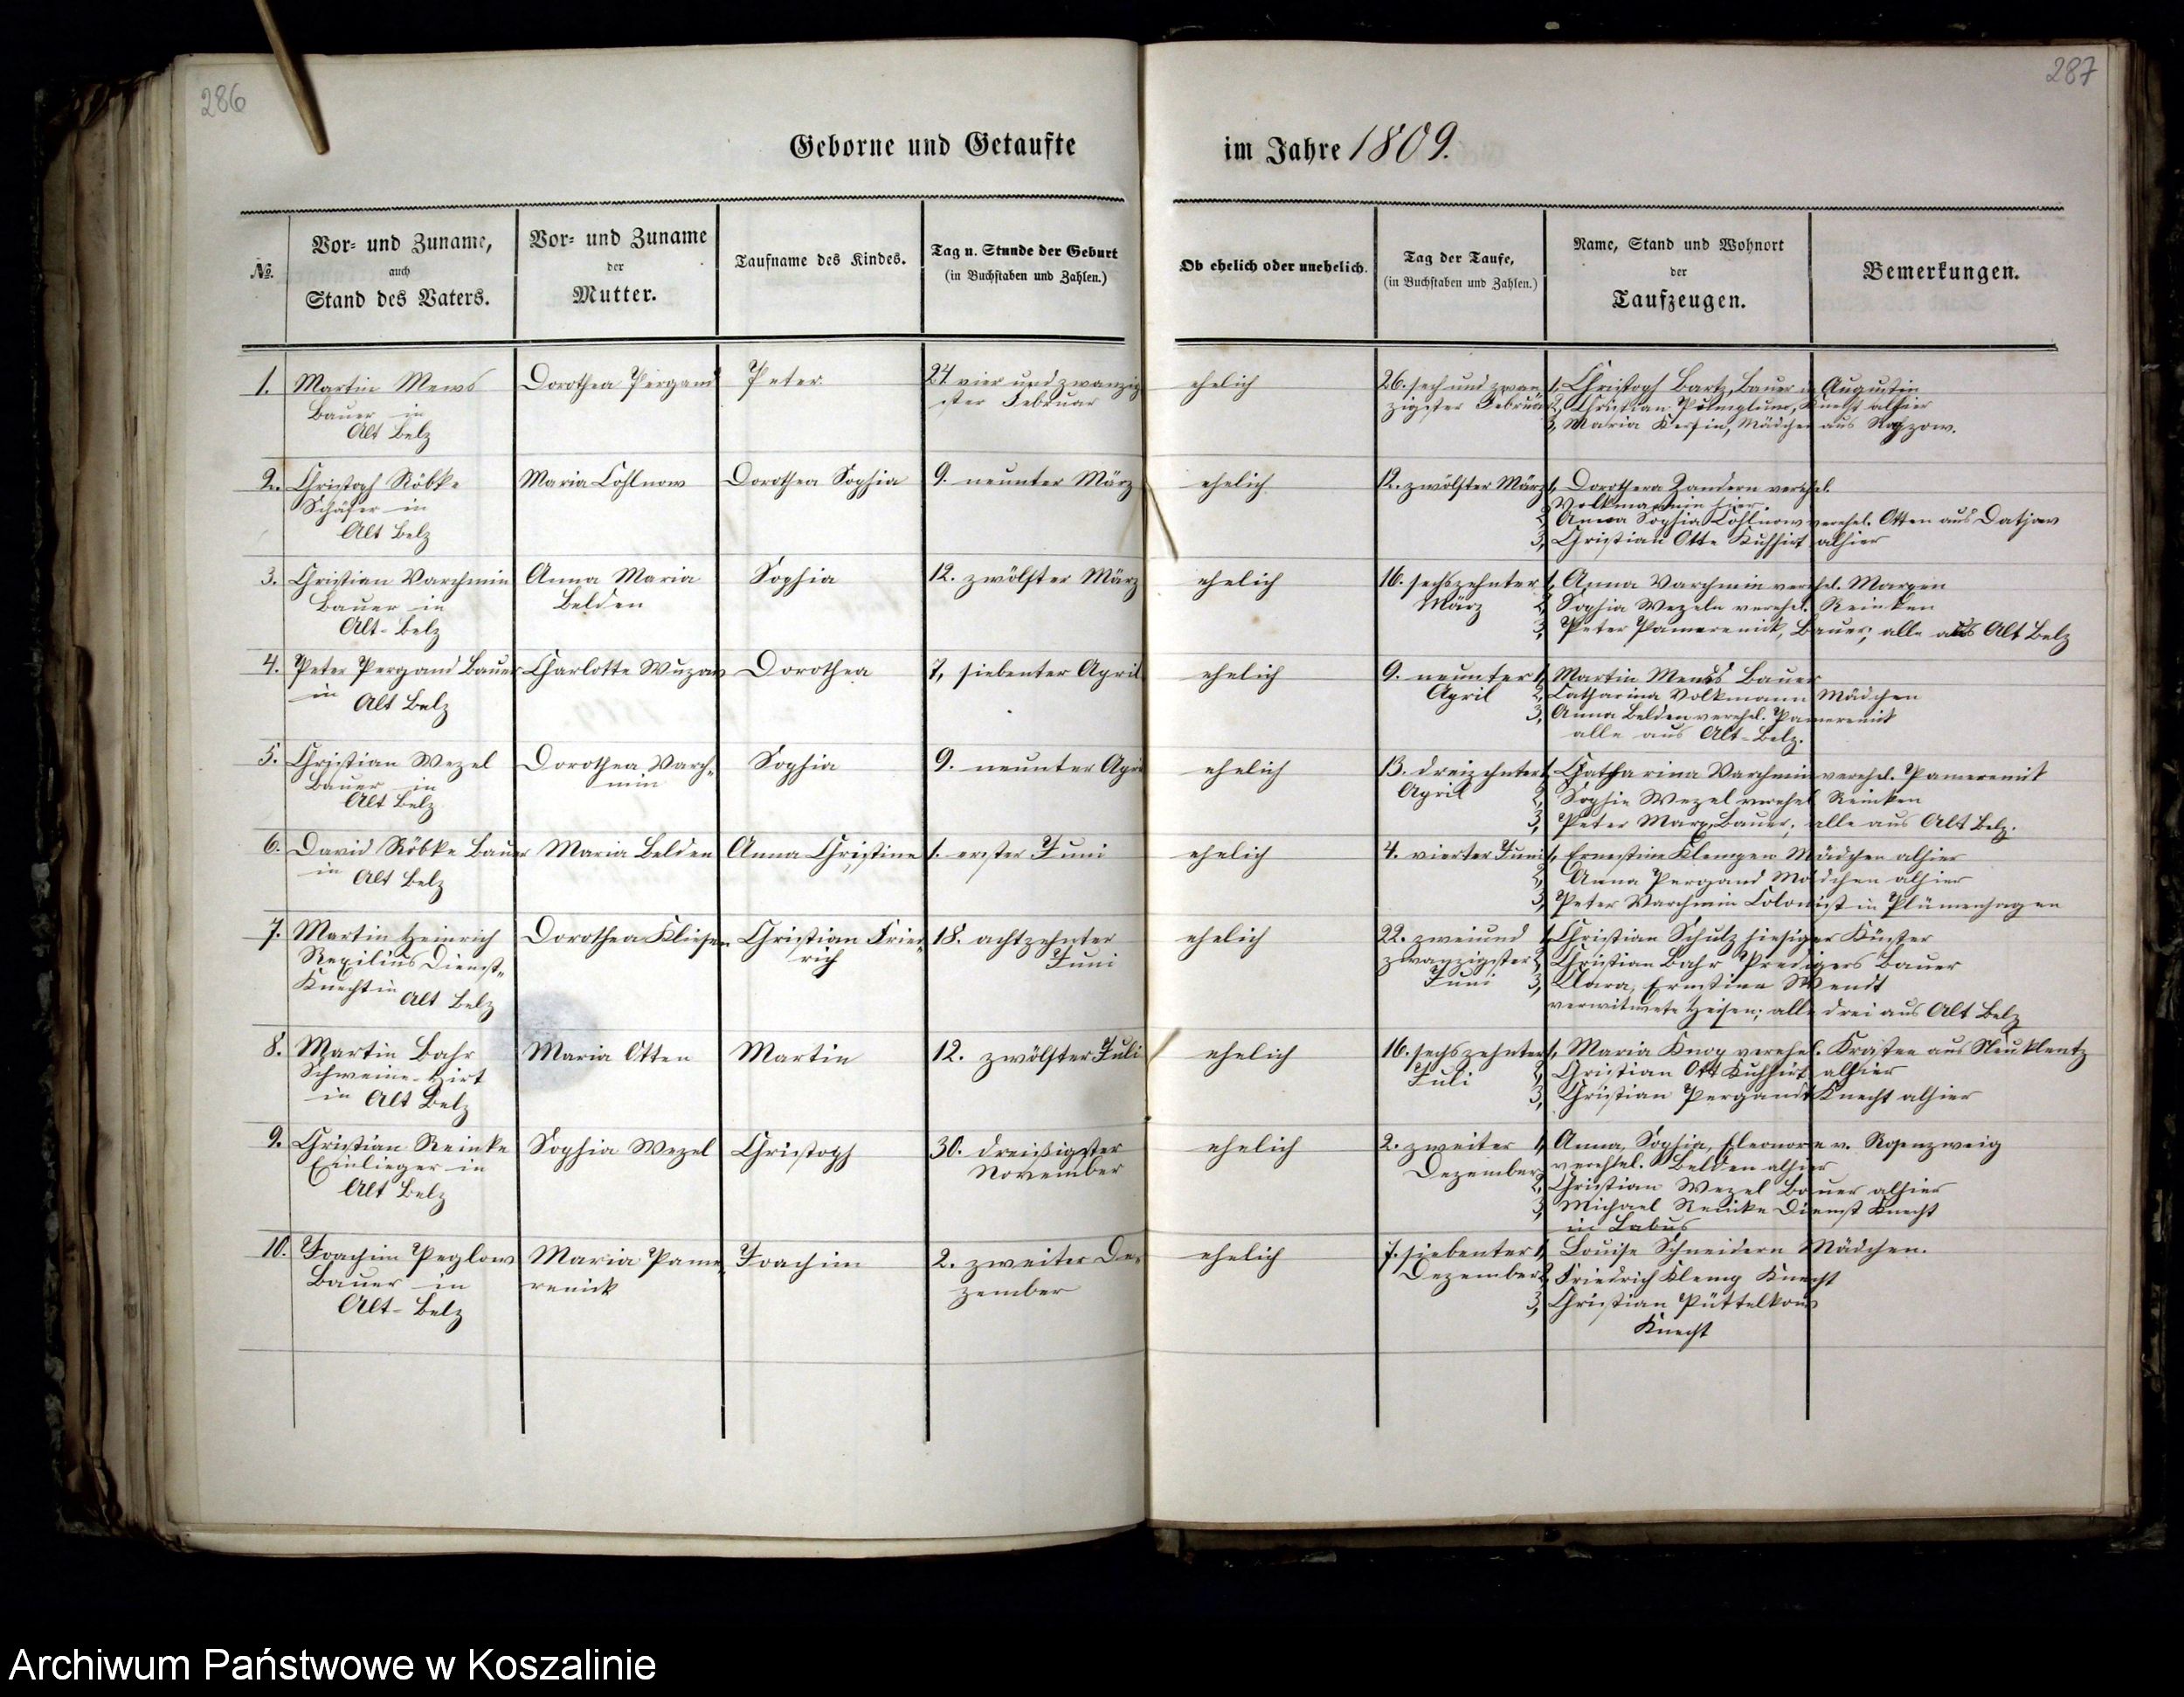 286
287
Geborne und Getaufte
im Jahre 1809.
No.
Vor- und Zuname,
auch
Stand des Vaters.
Vor- und Zuname
der
Mutter.
Taufname des Kindes.
Tag u. Stunde der Geburt
(in Buchstaben und Zahlen.)
Ob ehelich oder unehelich.
Tag der Taufe,
(in Buchstaben und Zahlen.)
Name, Stand und Wohnort
der
Taufzeugen.
Bemerkungen.
1.
Martin Mews
Bauer in
Alt Belz
Dorothea Pergand
Peter
24 vier und zwanzig
ster Februar
ehelich
26. sech und zwan
zigster Februar
1, Christoph Bartz, Bauer in Augustin
2, Christian Knecht alhier
3, Maria Kersin, Mädchen aus
2.
Christoph Röbke
Schäfer in
Alt Belz
Maria Cohlnow
Dorothea Sophia
9. neunter März
ehelich
12. zwölfter März
1, Dorothera Zandern verehel.
Volkmannin hier.
2, Anna Sophia Cohlnow verehel. Otten aus Datjow
3, Christian Otte Kuhhirt alhier
3.
Christian Varchmin
Bauer in
Alt-Belz
Anna Maria
Belden
Sophia
12. zwölfter März
ehelich
16. sechszehnter
März
1, Anna Varchmin verehel. Marxen
2, Sophia Wezeln verehel. Reinken
3, Peter Pamerenick, Bauer; alle aus Alt Belz
4.
Peter Pergand Bauer
in Alt Belz
Charlotte Wuzow
Dorothea
7, siebenter April
ehelich
9. neunter
April
1, Martin Mews Bauer
2, Catharina Volkmann Mädchen
3, Anna Belden verehel. Pamerenick
alle aus Alt-Belz.
5.
Christian Wezel
Bauer in
Alt Belz
Dorothea Varch-
min
Sophia
9. neunter April
ehelich
13. dreizehnter
April
1, Catharina Varchmin verehel. Pamerenick
2, Sophie Wezel verehel Reinken
3, Peter Marx, Bauer; alle aus Alt Belz.
6.
David Röbke Bauer
in Alt Belz
Maria Belden
Anna Christine
1. erster Juni
ehelich
4. vierter Juni
1, Ernestine Klempen Mädchen alhier
2, Anna Pergand Mädchen alhier
3, Peter Varchmin Colonist in Plümenhagen
7.
Martin Heinrich
Rexilius Dienst-
Knecht in Alt Belz
Dorothea Kliesen
Christian Fried-
rich
18. achtzehnter
Juni
ehelich
22. zweiund
zwanzigster
Juni
1. Christian Schulz hiesiger Küster
2, Christian Bahr Predigers Bauer
3, Clara, Ernstine Wendt
verwitwete Heisen; alle drei aus Alt Belz
8.
Martin Bahr
Schweine-Hirt
in Alt Belz
Maria Otten
Martin
12. zwölfter Juli
ehelich
16. sechszehnter
Juli
1, Maria Knop verehel. Krästen aus Neuklentz
2, Christian Ott Kuhhirt alhier
3, Christian Pergandt Knecht alhier
9.
Christian Reinke
Einlieger in
Alt Belz
Sophia Wezel
Christoph
30. dreißigster
November
ehelich
2. zweiter
Dezember
1, Anna, Sophia, Eleonore v. Rosenzweig
verehel. Belden alhier
2, Christian Wezel Bauer alhier
3, Michael Reinke Dienst Knecht
in Labus
10.
Joachim Peglow
Bauer in
Alt-Belz
Maria Pame-
renick
Joachim
2. zweiter De-
zember
ehelich
7. siebenter
Dezember
1, Louise Schneidern Mädchen.
2, Friedrich Klemp Knecht
3, Christian Püttelkow
Knecht
Archiwum Państwowe w Koszalinie